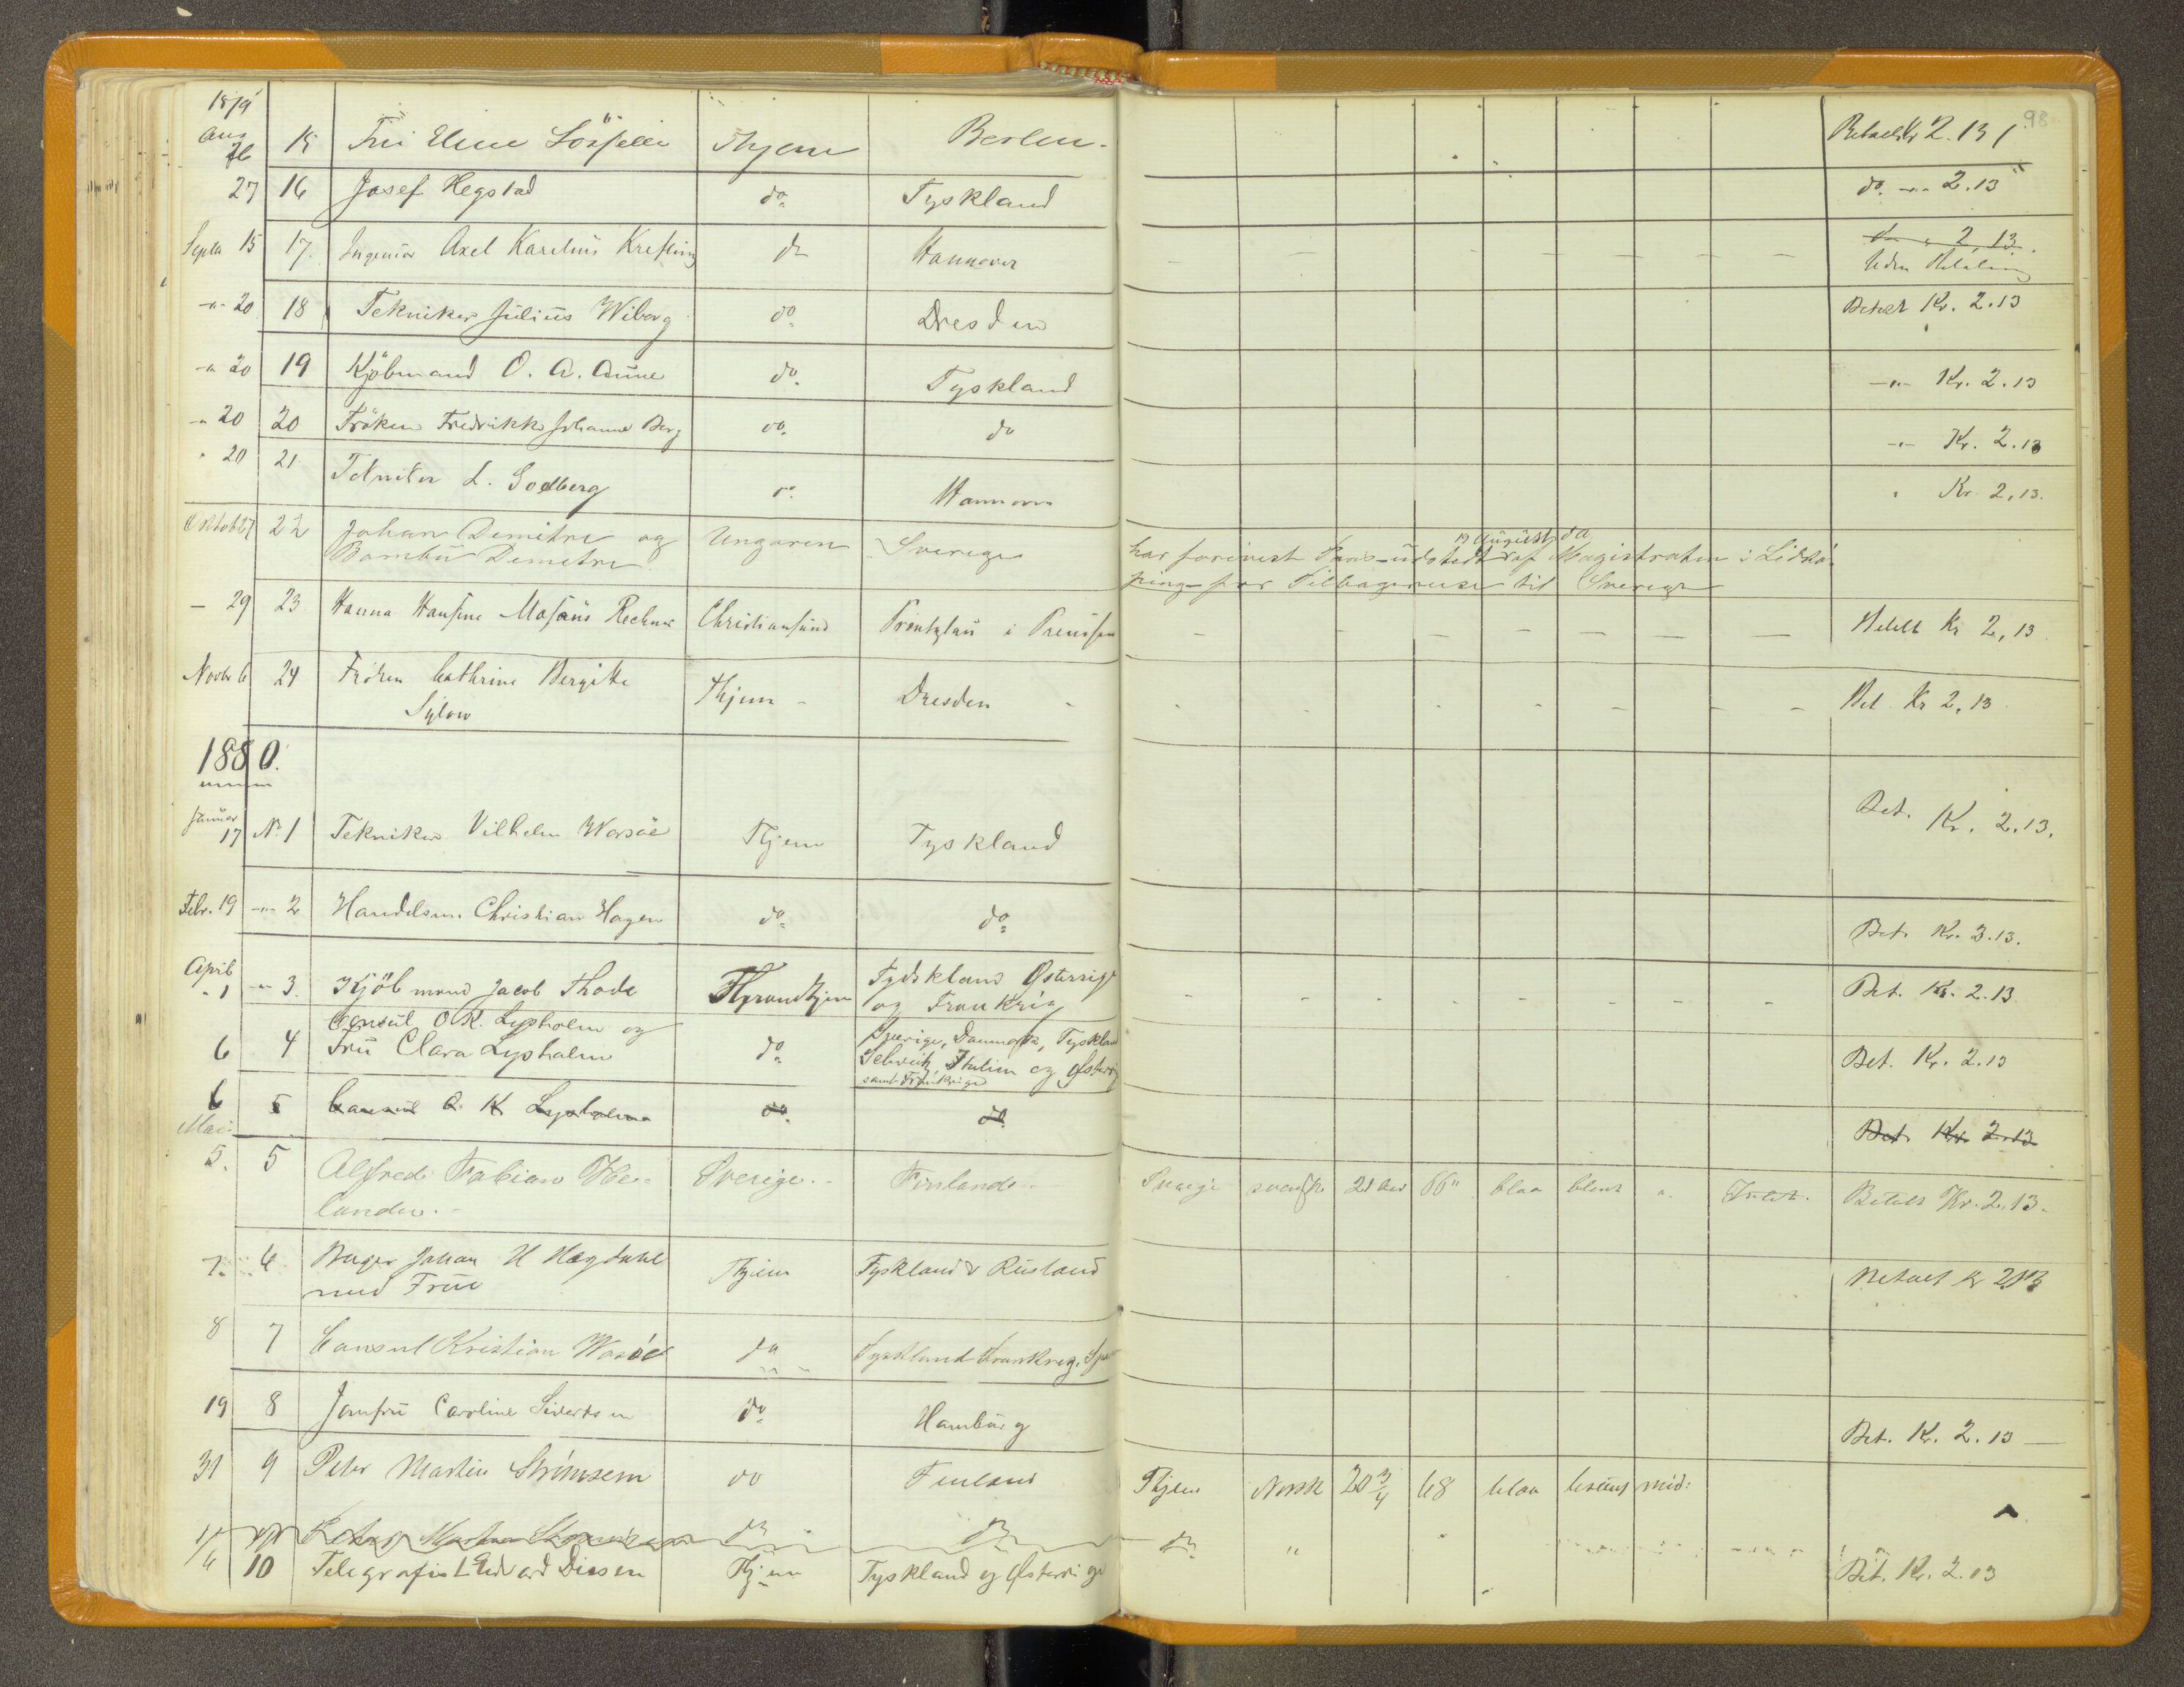 1879
98
Aug 26 15 Thjem Berlin. Betalt Kr 2.13
27 16 Josef Hegstad do Tyskland do -"- 2.13
Septbr 15 17. Ingeniör Axel Karelius Krefting do Hannover do " 2,13.
Uden Betaling
-"- 20 18 Tekniker Julius Wiberg do Dresden Betalt Kr. 2.13
-" 20 19 Kjøbmand O. A. Aune do Tyskland -"- Kr. 2.13
" 20 20 Frøken Fredrikke Johanne Berg do do -"- Kr. 2.13
" 20 21 Tekniker L. Godberg do Hannover " Kr. 2,13.
19 August d.a.
Oktob 27 22 Johan Demitre og Ungaren Sverige har forevist Pas udstedt af Magistraten i Lidkö-
Bambu Demetre ping for Tilbagereise til Sverige
- 29 23 Hanna Hansine Christiansund Prentzlau i Preussen Betalt Kr 2,13
Novbr 6 24 Frøken Cathrine Bergitte Thjem - Dresden Bet. Kr 2,13
Sylow
1880.
Januar
17 No 1 Tekniker Vilhelm Worsøe Thjem Tyskland Bet. Kr. 2.13.
Febr. 19 -"- 2 Handelsm. Christian Hagen do do Bet. Kr. 2.13.
April
" 1 -"- 3. Kjøbmand Jacob Thode Throndhjem Tydskland Østerrige Bet. Kr. 2.13
og Frankrig
Consul O.K. Lysholm og Sverige, Danmark, Tyskland
6 4 Fru Clara Lysholm do Schveitz, Italien og Østerrig Bet. Kr. 2.13
samt Frankrige
6 5 Consul O. K. Lysholm do do Bet. Kr. 2.13
Mai
5. 5 Alfred Fabian He- Sverige. Finland. Sverige svensk 21 Aar 66" blaa blont " Betalt Kr. 2.13.
lander.
7. 6 Bager Johan H Hegdahl Thjem Tyskland & Rusland Betalt Kr 2.13
med Frue
8 7 Consul Kristian Worsöe do Tyskland Frankrig,
19 8 Jomfru Caroline Sivertsen do Hamburg Bet. Kr. 2.13 -
31 9 Peter Martin Strömsem do Finland Thjem Norsk 20 3/4 68 blaa brunt mid:
Peter Martin do do do "
1/6 10 Telegrafist Edvard Diesen Thjem Tyskland og Østerrige Bet. Kr. 2.13